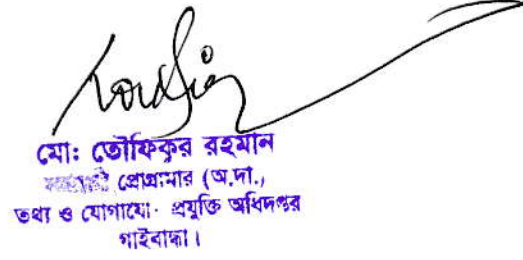 মো: তৌফিকুর রহমান
প্রোগ্রামার (অ.দা.,
তথ্য ও যোগাযো· প্রযুক্তি অধিদপ্তর
গাইবান্ধা।